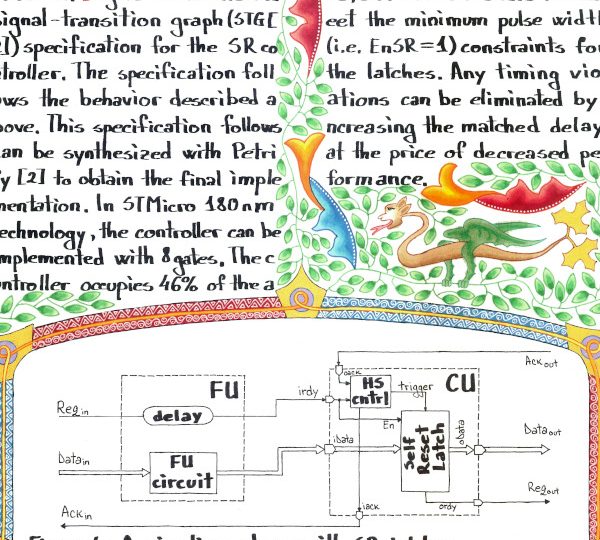 signal-transition graph (STG [
2]) specification for the SR co
ntroller. The specification foll
ows the behavior described a
bove. This specification follows
can be synthesized with Petri
fy [2] to obtain the final imple
mentation. In STMicro 180nm
technology, the controller can be
implemented with 8 gates. The c
ontroller occupies 46% of the a
eet the minimum pulse width
(i.e. EnSR=1) constraints for
the latches. Any timing viol
ations can be eliminated by
ncreasing the matched delay
at the price of decreased pe
formance.
FU
Req in
delay
Data in
FU
circuit
Ack in
irdy
iData
iack
oack
HS
cntrl
trigger
CU
En
Self
Reset
Latch
oData
ordy
Ack out
Data out
Req out